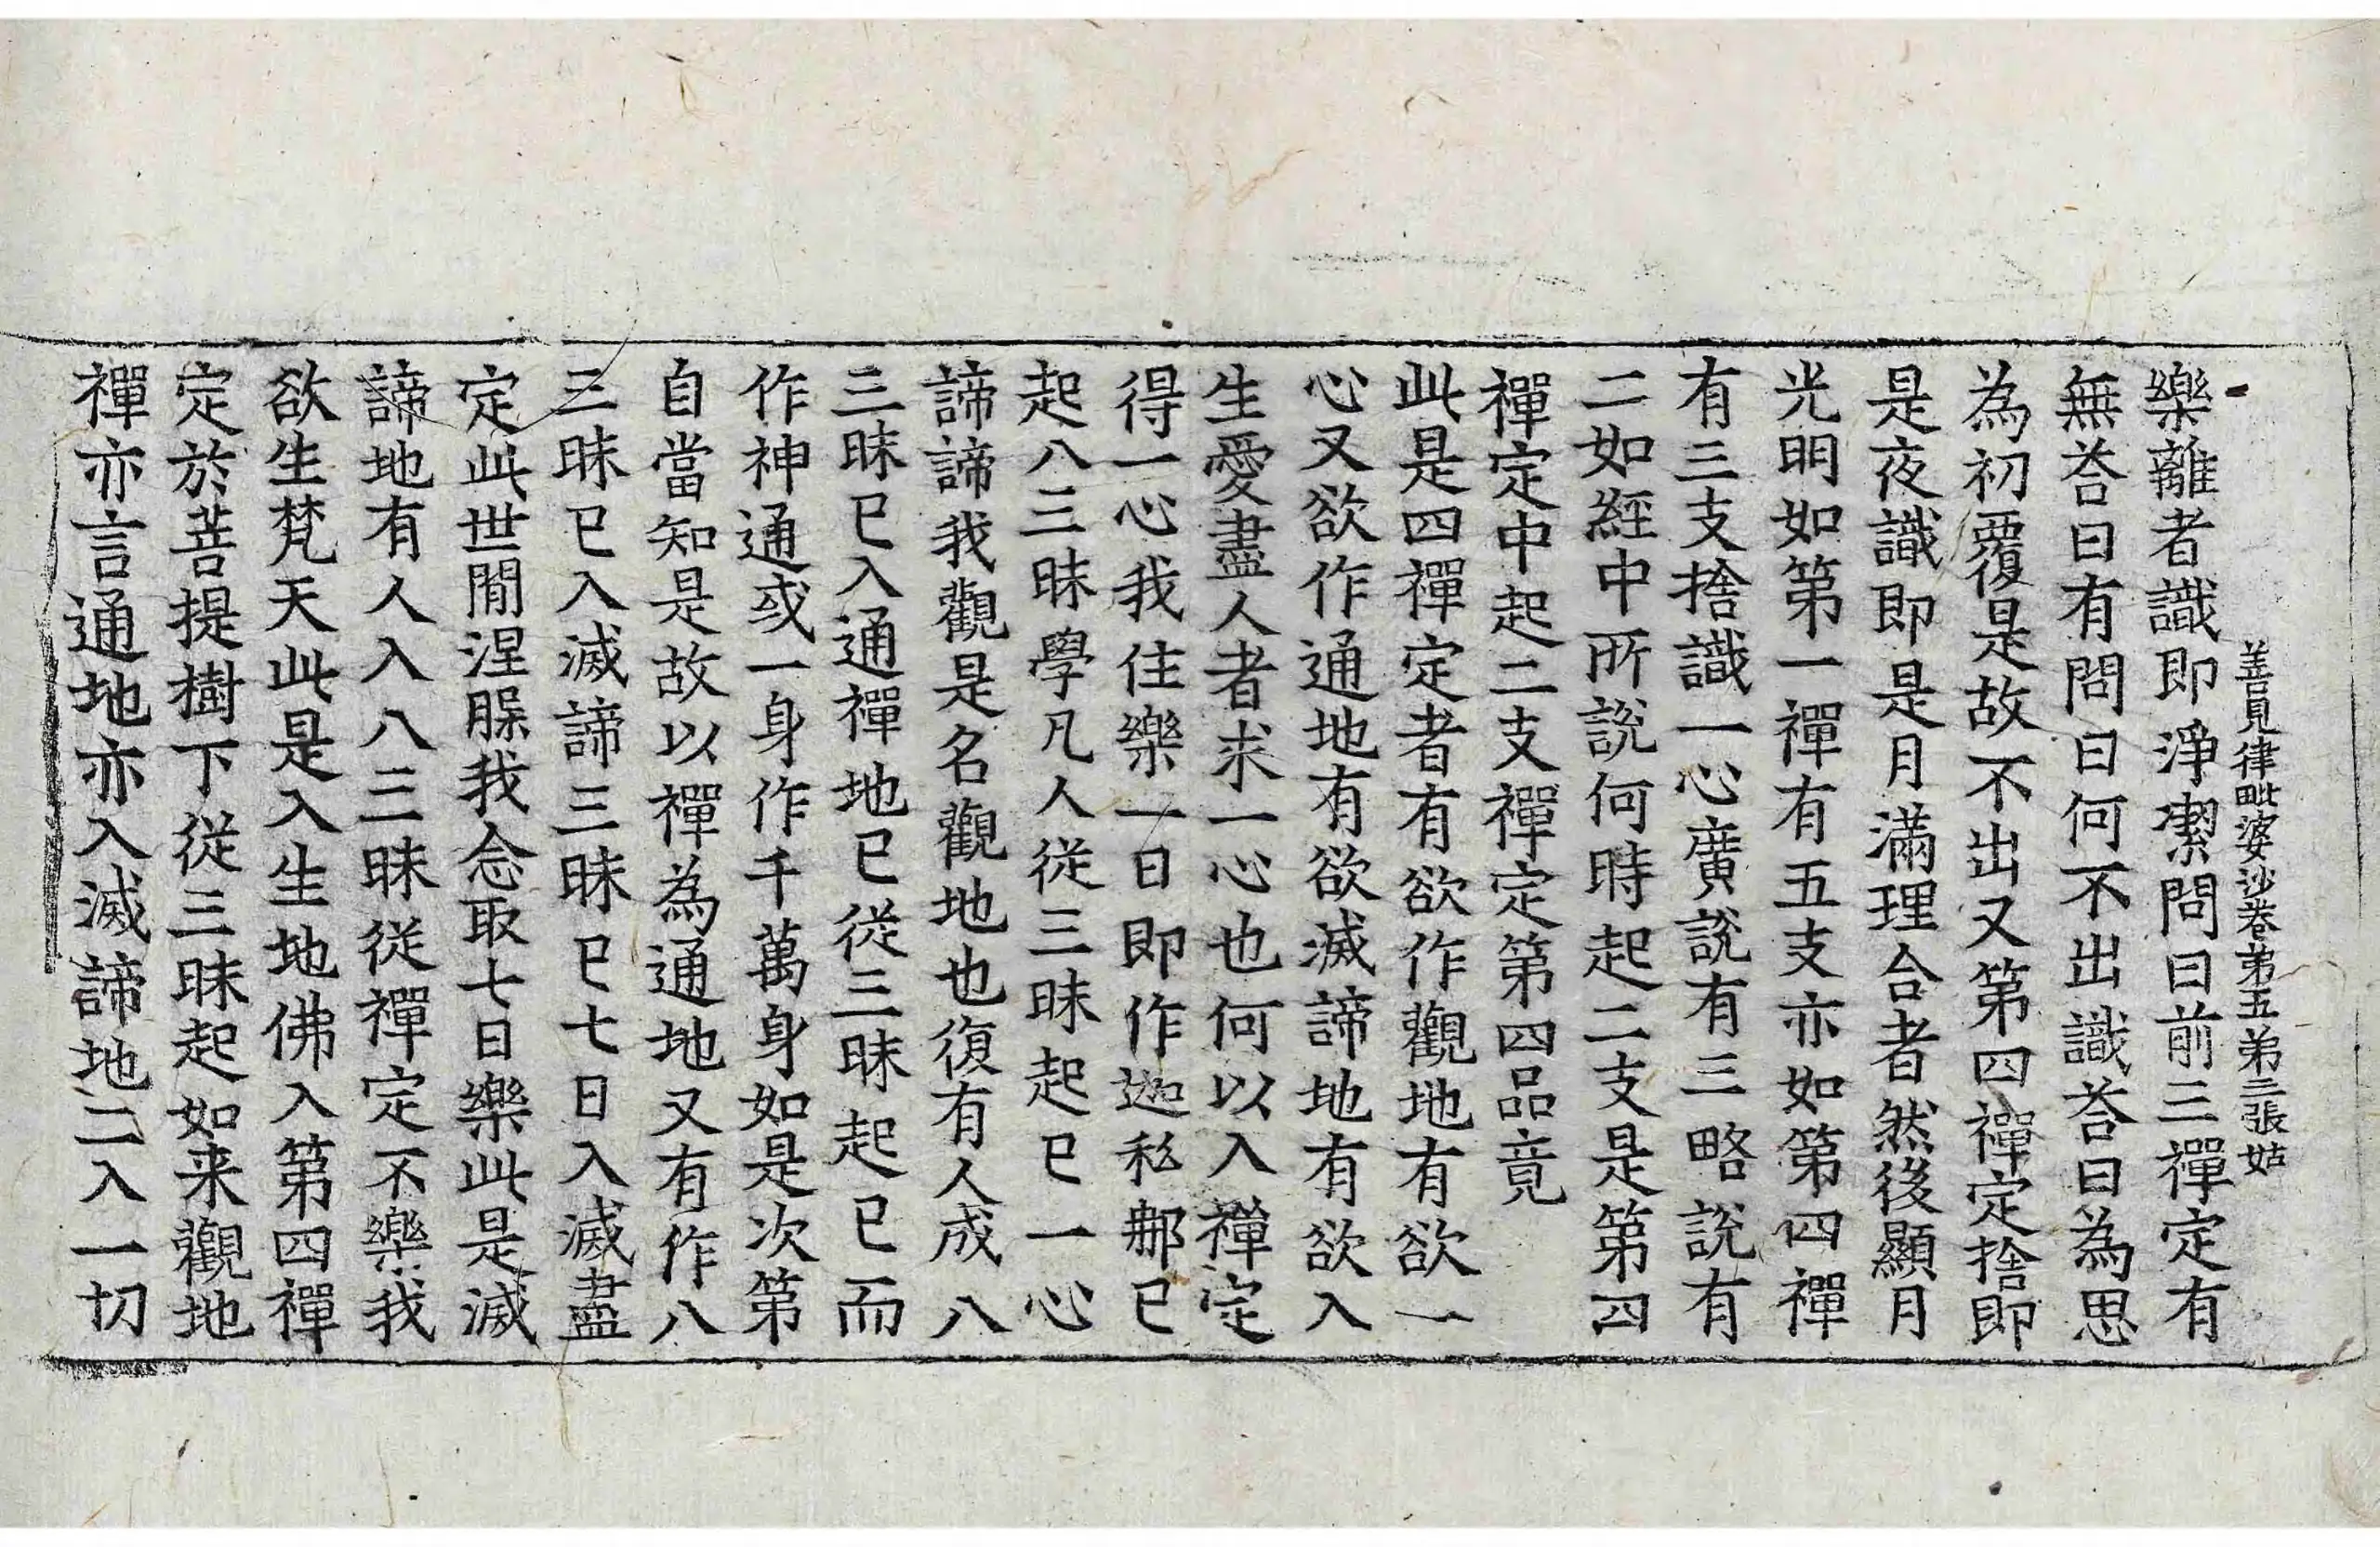 善見律毗婆沙卷第五第三張姑
樂離者識即淨潔問曰前三禪定有
無荅曰有問曰何不出識荅曰為思
為初覆是故不出又第四禪定捨即
是夜識即是月滿理合者然後顯月
光明如第一禪有五支亦如第四禪
有三支捨識一心廣說有三略說有
二如經中所說何時起二支是第四
禪定中起二支禪定第四品竟
此是四禪定者有欲作觀地有欲一
心又欲作通地有欲滅諦地有欲入
生愛盡人者求一心也何以入禪定
得一心我住樂一日即作迦私郍已
起八三昧學凡人從三昧起已一心
諦諦我觀是名觀地也復有人成八
三昧已入通禪地已從三昧起已而
作神通或一身作千萬身如是次第
自當知是故以禪為通地又有作八
三昧已入滅諦三昧已七日入滅盡
定此世間涅槃我念取七日樂此是滅
諦地有人入八三昧從禪定不樂我
欲生梵天此是入生地佛入第四禪
定於菩提樹下從三昧起如来觀地
禪亦言通地亦入滅諦地二入一切